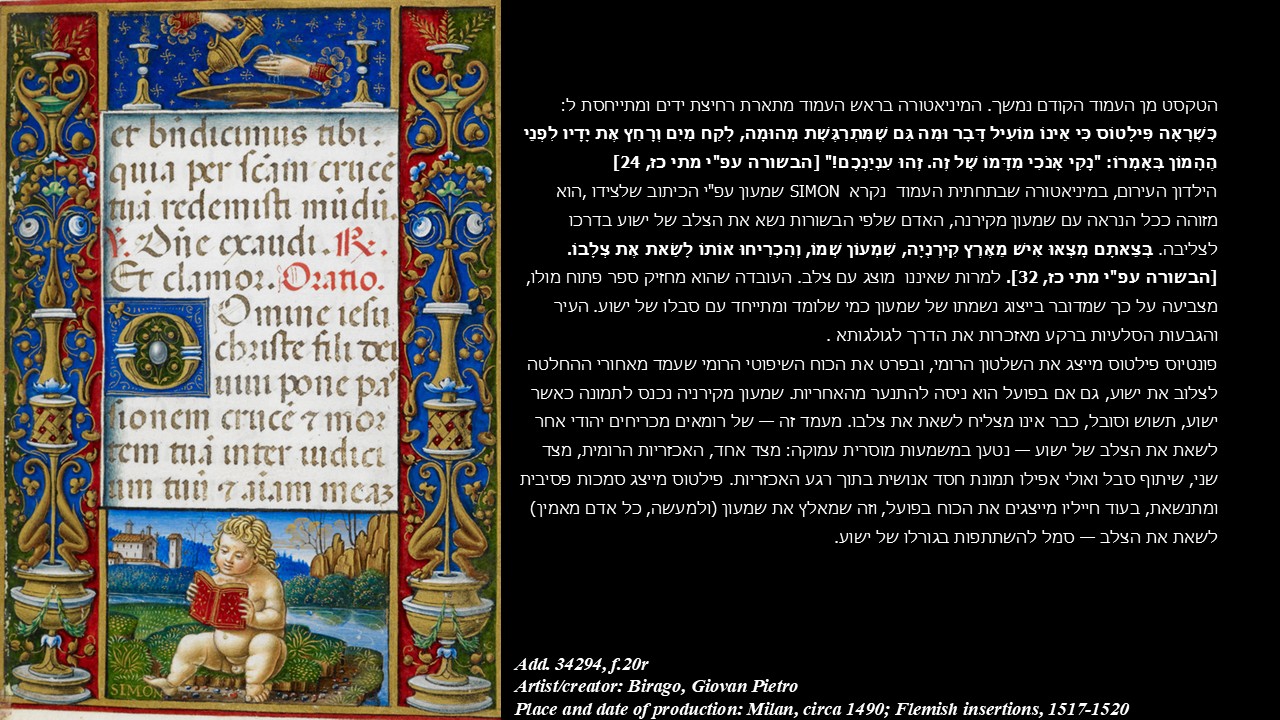 et bñdicimus tibi:
quia per scãm crucẽ
tuã redemisti mũdũ.
V. Dñe exaudi. R.
Et clamor. Oratio.
Domine iesu
christe fili dei
uiui pone pas
sionem crucẽ ⁊ mor
tem tuã inter iudici
um tuũ ⁊ aĩam meaз
SIMON
הטקסט מן העמוד הקודם נמשך. המיניאטורה בראש העמוד מתארת רחיצת ידים ומתייחסת ל:
כְּשֶׁרָאָה פִּילָטוֹס כִּי אֵינוֹ מוֹעִיל דָּבָר וּמַה גַּם שֶׁמִּתְרַגֶּשֶׁת מְהוּמָה, לָקַח מַיִם וְרָחַץ אֶת יָדָיו לִפְנֵי
הֶהָמוֹן בְּאָמְרוֹ: "נָקִי אָנֹכִי מִדָּמוֹ שֶׁל זֶה. זֶהוּ עִנְיַנְכֶם!" [הבשורה עפ"י מתי כז, 24]
הילדון העירום, במיניאטורה שבתחתית העמוד נקרא SIMON שמעון עפ"י הכיתוב שלצידו ,הוא
מזוהה ככל הנראה עם שמעון מקירנה, האדם שלפי הבשורות נשא את הצלב של ישוע בדרכו
לצליבה. בְּצֵאתָם מָצְאוּ אִישׁ מֵאֶרֶץ קִירֶנְיָה, שִׁמְעוֹן שְׁמוֹ, וְהִכְרִיחוּ אוֹתוֹ לָשֵׂאת אֶת צְלָבוֹ.
[הבשורה עפ"י מתי כז, 32]. למרות שאיננו מוצג עם צלב. העובדה שהוא מחזיק ספר פתוח מולו,
מצביעה על כך שמדובר בייצוג נשמתו של שמעון כמי שלומד ומתייחד עם סבלו של ישוע. העיר
והגבעות הסלעיות ברקע מאזכרות את הדרך לגולגותא .
פונטיוס פילטוס מייצג את השלטון הרומי, ובפרט את הכוח השיפוטי הרומי שעמד מאחורי ההחלטה
לצלוב את ישוע, גם אם בפועל הוא ניסה להתנער מהאחריות. שמעון מקירניה נכנס לתמונה כאשר
ישוע, תשוש וסובל, כבר אינו מצליח לשאת את צלבו. מעמד זה — של רומאים מכריחים יהודי אחר
לשאת את הצלב של ישוע — נטען במשמעות מוסרית עמוקה: מצד אחד, האכזריות הרומית, מצד
שני, שיתוף סבל ואולי אפילו תמונת חסד אנושית בתוך רגע האכזריות. פילטוס מייצג סמכות פסיבית
ומתנשאת, בעוד חייליו מייצגים את הכוח בפועל, וזה שמאלץ את שמעון (ולמעשה, כל אדם מאמין)
לשאת את הצלב — סמל להשתתפות בגורלו של ישוע.
Add. 34294, f.20r
Artist/creator: Birago, Giovan Pietro
Place and date of production: Milan, circa 1490; Flemish insertions, 1517-1520